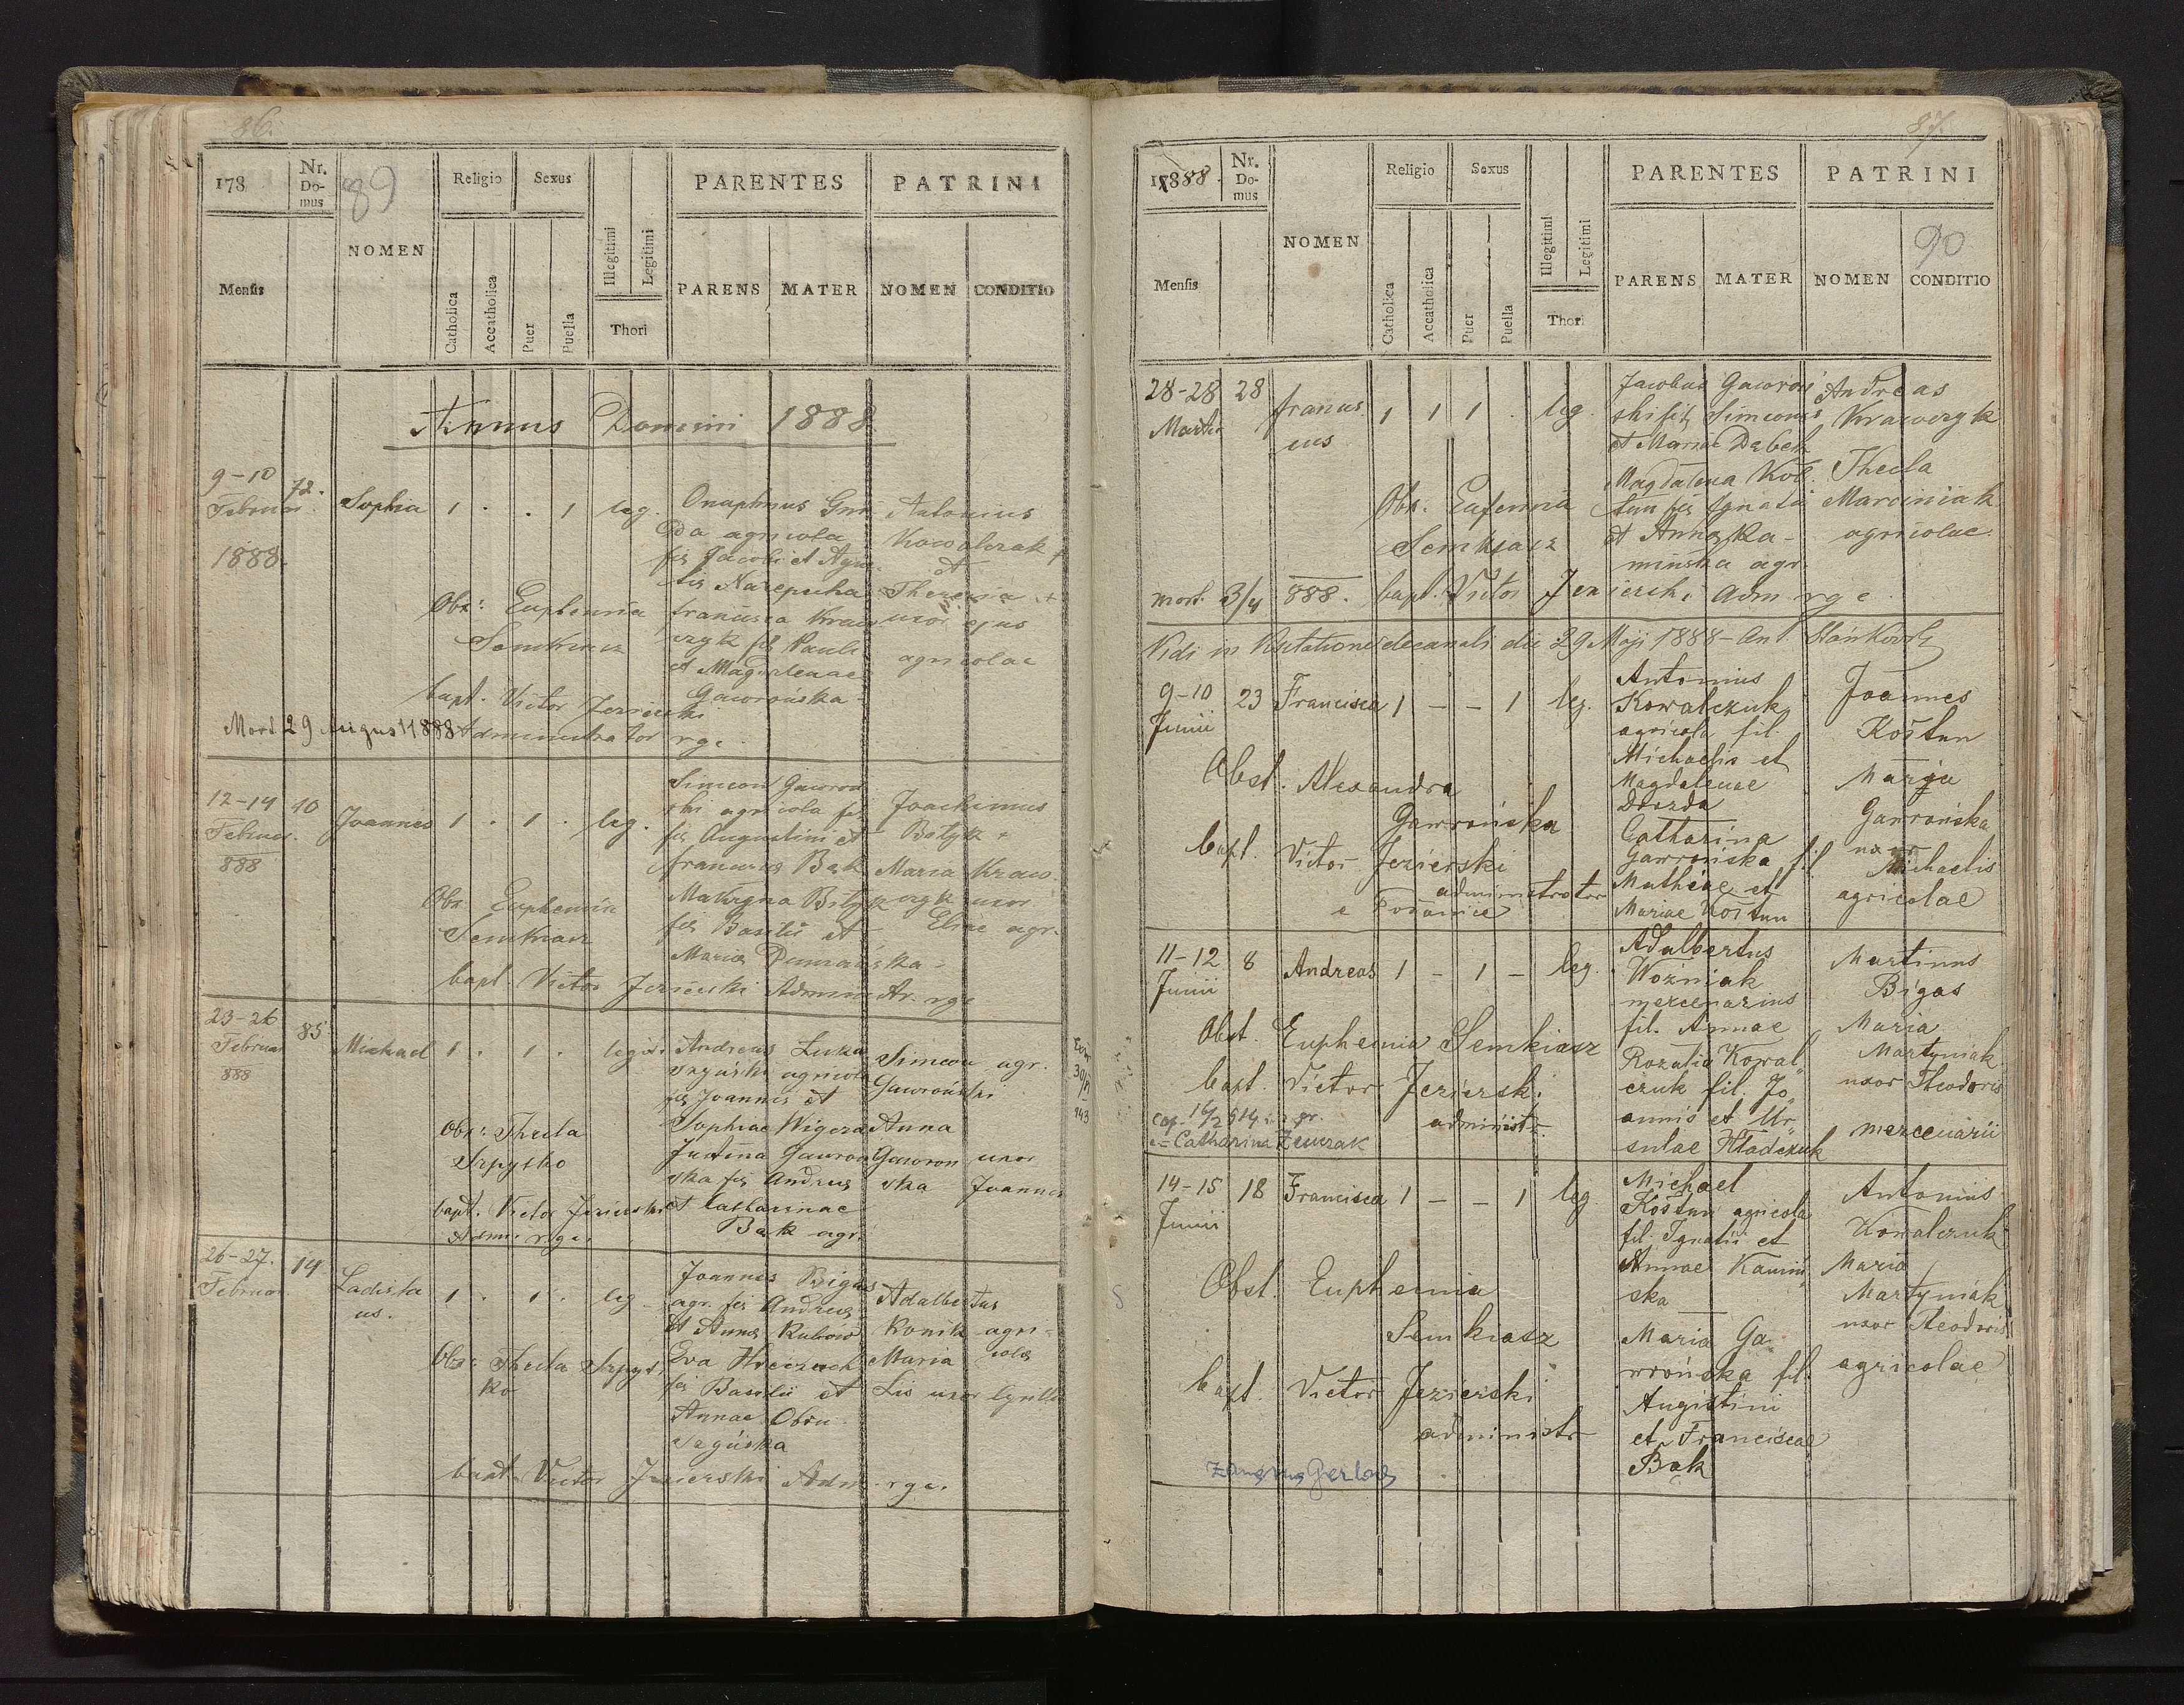 86.
178
Nr. Domus
89
NOMEN
Religio
Sexus
PARENTES
PATRINI
Mensis
Catholica
Accatholica
Puer
Puella
Illegitimi
Legitimi
Thori
PARENS
MATER
NOMEN
CONDITIO
Annus Domini 1888.
9-10
Februar
1888.
72.
Sophia
1 . . 1 leg.
Onuphrius Gnı
da agricola
fil Jacobi et Agne
tis Narepucha
francisca Kraw
czyk fil Pauli
et Magdalenae
Gawrońska
Antonius
Kowalczuk +
et
Theresia +
uxor ejus
agricolae
Obs: Euphemia
Semkiasz
bapt. Victor Jezierski
Administrator rge.
Mort 29 August 1888
12-14
Februar.
888
40
Joannes
1 . 1 . leg.
Simeon Gawroń
ski agricola
fil Augustini et
franciscae Bak
Matryna Bityk
fil Basilii et
Maria
Joachimus
Bityk +
Maria Kraw
czyk uxor
Eliae agr.
Obs: Euphemia
Semkiasz
bapt. Victor Jezierski Administr. rge
23-26
Februar
888
85
Michael
1 . 1 . legit.
Andreas Luka
szyński agricola
fil Joannis et
Sophiae Wigera
Justina Gawroń
ska fil Andreas
et Catharinae
Bak agr.
Simeon agr.
Gawroński
Anna
Gawron uxor
ska Joannis
Obs: Thecla
Szpytko
bapt. Victor Jezierski
Admin rge.
26-27.
Februar
14
Ladisla
us.
1 . 1 . leg
Joannes Bigas
agr. fil Andreas
et Anna Kubów
Eva Hreczuch
fil Basilii et
Annae Obru
Adalbertus
Konik agri
Maria colae
Lis uxor Cyrilli
Obs: Thecla Szpyt
ko
bapt. Victor Jezierski Adm. rge.
87.
1888.
Nr. Domus
NOMEN
Religio
Sexus
PARENTES
PATRINI
90
Mensis
Catholica
Accatholica
Puer
Puella
Illegitimi
Legitimi
Thori
PARENS
MATER
NOMEN
CONDITIO
28-28
Martii
28
francis
cus
1 1 1 . leg.
Jacobus Gawroń
ski fil Simeonis
et Mariae Dąbek
Magdalena Koś
tun fil Ignatii
et Anna Ka-
mińska agr.
Andreas
Krawczyk
Thecla
Marciniak
agricolae.
Obs: Eufemia
Semkiasz
mort 3/4 888. bapt. Victor Jezierski Adm rge.
Vidi in Visitatione decanali die 29 Maji 1888 - Ant.
9-10
Junii
23
Francisca
1 - - 1 leg.
Antonius
Kowalczuk
agricola fil.
Michaelis et
Magdalenae
Drozda
Catharina
Gawrońska fil
Mathiae et
Mariae Kostun
Joannes
Kostun
Marya
Gawrońska
uxor
Michaelis
agricolae
Obst. Alexandra
Gawrońska
bapt. Victor Jezierski
administrator
11-12
Junii
8
Andreas
1 - 1 - leg.
Adalbertus
Woźniak
mercenarius
fil. Annae
Rozalia Kowal
czuk fil. Jo
annis et Ur
sulae Hładczuk
Martinus
Bigas
Maria
Martyniak
uxor Theodoris
mercenarii
Obst. Euphemia Semkiasz
bapt. Victor Jezierski
administr.
14-15
Junii
18
Francisca
1 - - 1 leg
Michael
Kostun agricola
fil. Ignatii et
Annae Kamiń
ska
Maria Ga
wrońska fil.
Augistini
et Franciscae
Bak
Antonius
Kowalczuk
Maria
Martyniak
uxor Teodoris
agricolae
Obst. Euphemia
Semkiasz
bapt. Victor Jezierski
administr